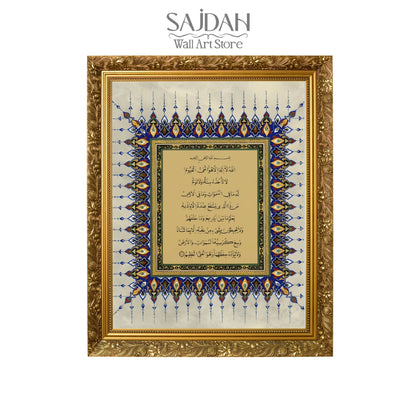 SAJDAH
Wall Art Store
بسم الله الرحمن الرحيم
الله لا إله إلا هو الحي القيوم
لا تأخذه سنة ولا نوم
له ما في السموات وما في الأرض
من ذا الذي يشفع عنده إلا بإذنه
يعلم ما بين أيديهم وما خلفهم
ولا يحيطون بشيء من علمه إلا بما شاء
وسع كرسيه السموات والأرض
ولا يؤده حفظهما وهو العلي العظيم